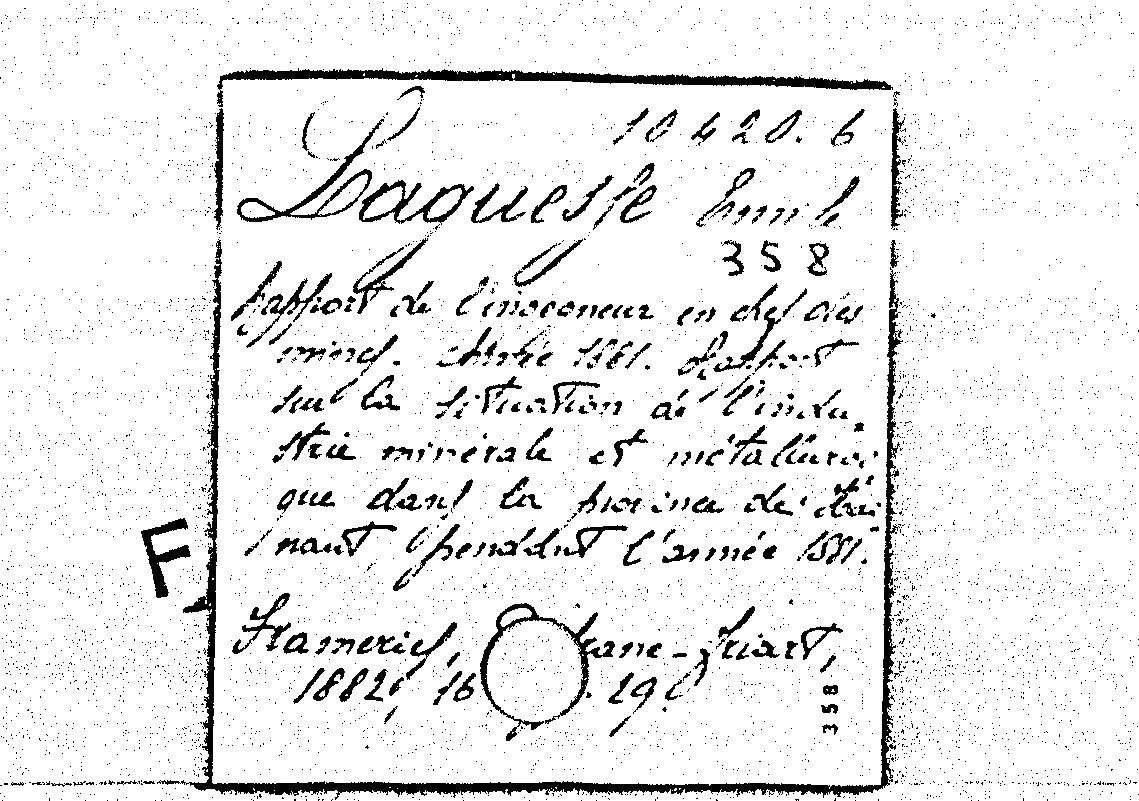 10420.6
Laguesse Emile
358
Rapport de l'ingénieur en chef des
mines. Année 1881. Rapport
sur la situation de l'indu-
strie minérale et métallurgi
que dans la province de Hai-
naut, pendant l'année 1881.
F
Frameries, Friart,
1882, 16 . 29
358